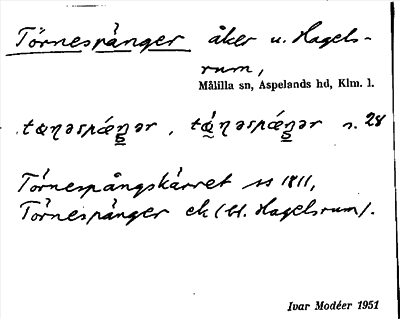 Törnespånger åker u. Hagels-
rum,
Målilla sn, Aspelands hd, Klm. l.
s. 28
Törnespångskärret ss 1811,
Törnespånger ek (bl. Hagelsrum).
Ivar Modéer 1951